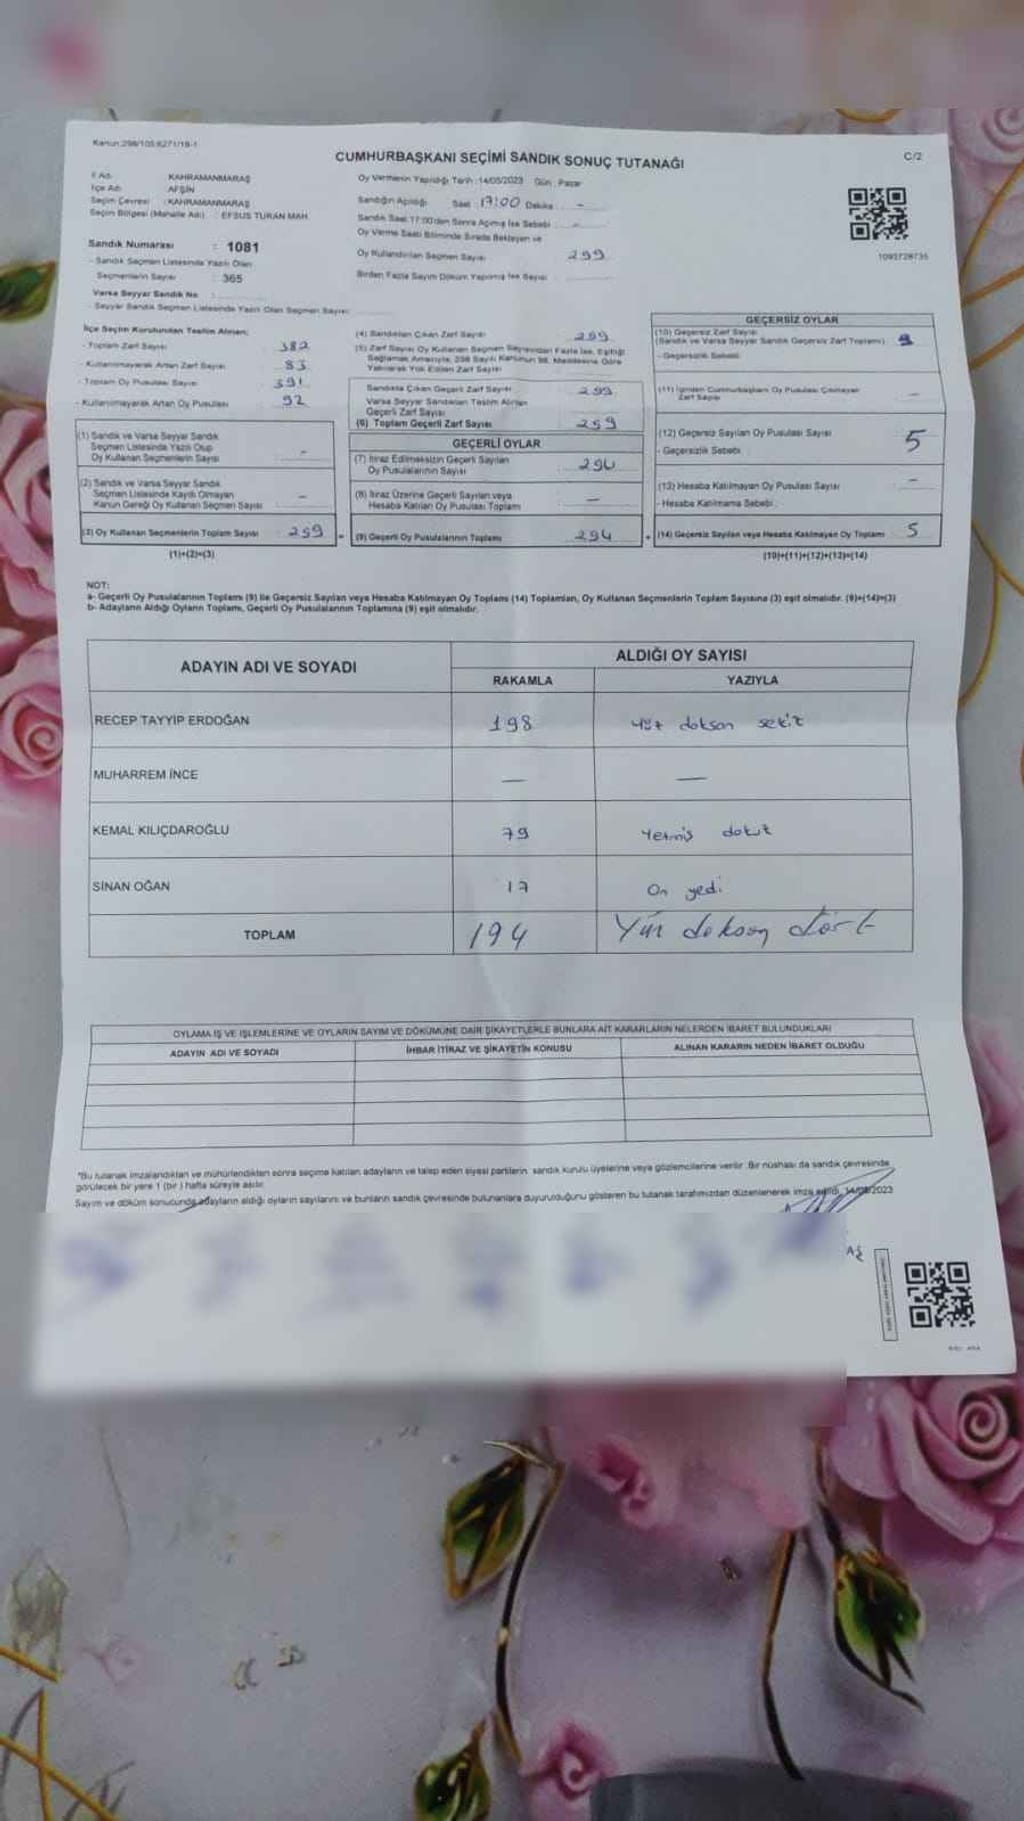 Kanun:298/105;6271/18-1
CUMHURBAŞKANI SEÇİMİ SANDIK SONUÇ TUTANAĞI
C/2
İl Adı KAHRAMANMARAŞ
İlçe Adı AFŞİN
Seçim Çevresi : KAHRAMANMARAŞ
Seçim Bölgesi (Mahalle Adı) : EFSUS TURAN MAH.
Sandık Numarası : 1081
- Sandık Seçmen Listesinde Yazılı Olan
Seçmenlerin Sayısı : 365
Varsa Seyyar Sandık No :
- Seyyar Sandık Seçmen Listesinde Yazılı Olan Seçmen Sayısı:
Oy Vermenin Yapıldığı Tarih :14/05/2023 Gün : Pazar
Sandığın Açıldığı Saat : 17:00 Dakika : -
Sandık Saat 17:00'den Sonra Açılmış İse Sebebi : -
Oy Verme Saati Bitiminde Sırada Bekleyen ve
Oy Kullandırılan Seçmen Sayısı 299
Birden Fazla Sayım Döküm Yapılmış İse Sayısı
1093728735
İlçe Seçim Kurulundan Teslim Alınan;
- Toplam Zarf Sayısı 382
- Kullanılmayarak Artan Zarf Sayısı : 83
- Toplam Oy Pusulası Sayısı 391
- Kullanılmayarak Artan Oy Pusulası : 92
(1) Sandık ve Varsa Seyyar Sandık
Seçmen Listesinde Yazılı Olup
Oy Kullanan Seçmenlerin Sayısı -
(2) Sandık ve Varsa Seyyar Sandık
Seçmen Listesinde Kayıtlı Olmayan
Kanun Gereği Oy Kullanan Seçmen Sayısı -
(3) Oy Kullanan Seçmenlerin Toplam Sayısı 299
(1)+(2)=(3)
(4) Sandıktan Çıkan Zarf Sayısı 299
(5) Zarf Sayısı Oy Kullanan Seçmen Sayısından Fazla İse, Eşitliği
Sağlamak Amacıyla, 298 Sayılı Kanunun 98. Maddesine Göre
Yakılarak Yok Edilen Zarf Sayısı
Sandıkta Çıkan Geçerli Zarf Sayısı 299
Varsa Seyyar Sandıktan Teslim Alınan
Geçerli Zarf Sayısı
(6) Toplam Geçerli Zarf Sayısı 299
GEÇERLİ OYLAR
(7) İtiraz Edilmeksizin Geçerli Sayılan
Oy Pusulalarının Sayısı 294
(8) İtiraz Üzerine Geçerli Sayılan veya
Hesaba Katılan Oy Pusulası Toplamı —
(9) Geçerli Oy Pusulalarının Toplamı 294
GEÇERSİZ OYLAR
(10) Geçersiz Zarf Sayısı
(Sandık ve Varsa Seyyar Sandık Geçersiz Zarf Toplamı)
- Geçersizlik Sebebi
(11) İçinden Cumhurbaşkanı Oy Pusulası Çıkmayan
Zarf Sayısı -
(12) Geçersiz Sayılan Oy Pusulası Sayısı 5
- Geçersizlik Sebebi
(13) Hesaba Katılmayan Oy Pusulası Sayısı -
- Hesaba Katılmama Sebebi
(14) Geçersiz Sayılan veya Hesaba Katılmayan Oy Toplamı 5
(10)+(11)+(12)+(13)=(14)
NOT:
a- Geçerli Oy Pusulalarının Toplamı (9) ile Geçersiz Sayılan veya Hesaba Katılmayan Oy Toplamı (14) Toplamları, Oy Kullanan Seçmenlerin Toplam Sayısına (3) eşit olmalıdır. (9)+(14)=(3)
b- Adayların Aldığı Oyların Toplamı, Geçerli Oy Pusulalarının Toplamına (9) eşit olmalıdır.
ADAYIN ADI VE SOYADI
ALDIĞI OY SAYISI
RAKAMLA YAZIYLA
RECEP TAYYİP ERDOĞAN 198 Yüz doksan sekiz
MUHARREM İNCE — —
KEMAL KILIÇDAROĞLU 79 Yetmiş dokuz
SİNAN OĞAN 17 On yedi
TOPLAM 194 Yüz doksan dört
OYLAMA İŞ VE İŞLEMLERİNE VE OYLARIN SAYIM VE DÖKÜMÜNE DAİR ŞİKAYETLERLE BUNLARA AİT KARARLARIN NELERDEN İBARET BULUNDUKLARI
ADAYIN ADI VE SOYADI İHBAR İTİRAZ VE ŞİKAYETİN KONUSU ALINAN KARARIN NEDEN İBARET OLDUĞU
*Bu tutanak imzalandıktan ve mühürlendikten sonra seçime katılan adayların ve talep eden siyasi partilerin sandık kurulu üyelerine veya gözlemcilerine verilir. Bir nüshası da sandık çevresinde
görülecek bir yere 1 (bir ) hafta süreyle asılır.
Sayım ve döküm sonucunda adayların aldığı oyların sayılarını ve bunların sandık çevresinde bulunanlara duyurulduğunu gösteren bu tutanak tarafımızdan düzenlenerek imza edildi. 14/05/2023
AŞ